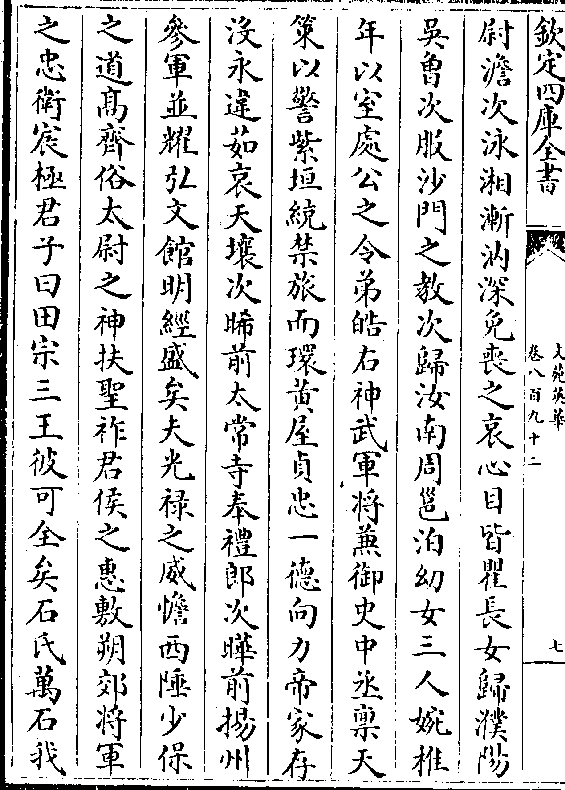 欽定四庫全書
文苑英華
卷八百九十二
七
尉澹次泳湘漸汭深免喪之哀心目皆瞿長女歸濮陽
吳曾次服沙門之教次歸汝南周邕洎幼女三人婉稚
年以室處公之令弟皓右神武軍將兼御史中丞稟天
策以警紫垣統禁旅而環黄屋貞忠一德向力帝家存
没永違茹哀天壤次晞前太常寺奉禮郎次曄前揚州
參軍並耀弘文館明經盛矣夫光禄之威憺西陲少保
之道髙齊俗太尉之神扶聖祚君侯之惠敷朔郊將軍
之忠衛宸極君子曰田宗三王彼可全矣石氏萬石我